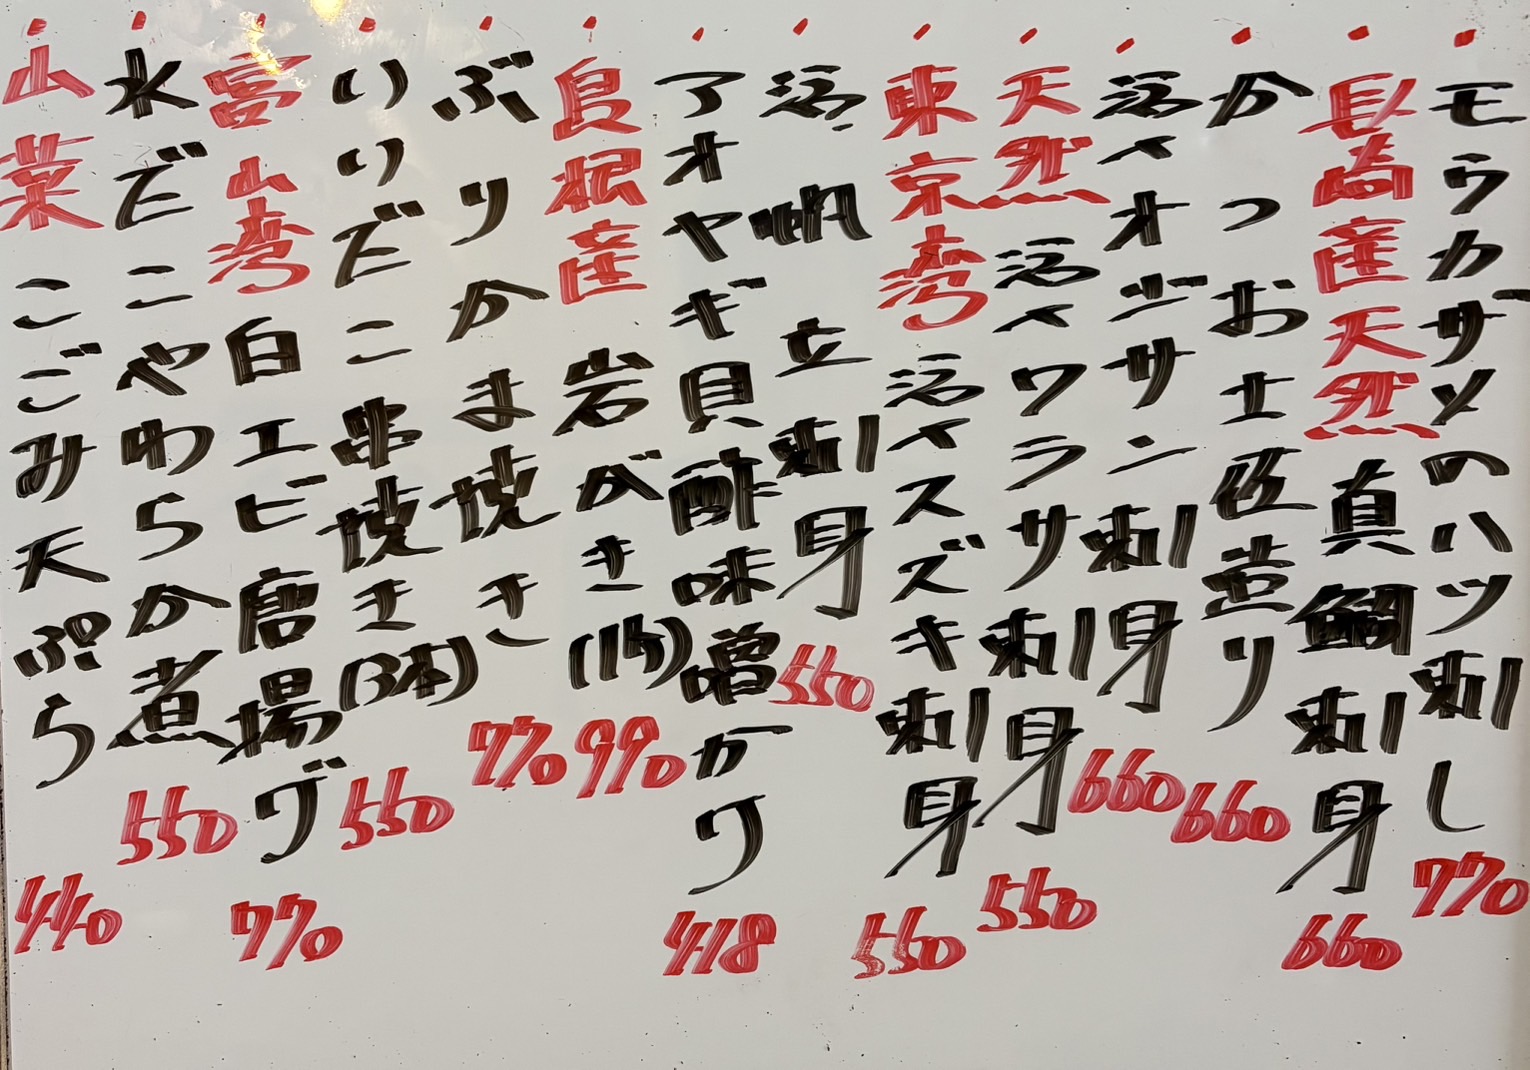 ・モウカザメのハツ刺し 770
・長崎産天然真鯛刺身 660
・かつお土佐造り 660
・活〆オジサン刺身 660
・天然活〆ワラサ刺身 550
・東京湾活〆スズキ刺身 550
・活帆立刺身 550
・アオヤギ貝酢味噌かけ 418
・島根産岩がき(1ケ) 990
・ぶりかま焼き 770
・いいだこ串焼き(3本) 550
・富山湾白エビ唐揚げ 770
・水だこやわらか煮 550
・山菜こごみ天ぷら 440